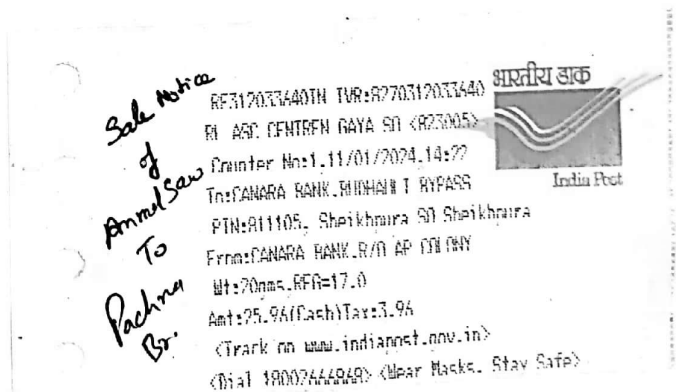 Sale Notice
of
Anmol Saw
To
Pachna
Br.
भारतीय डाक
India Post
RF312033640IN IVR:8270312033640
RL ASC CENTREN GAYA SO <823005>
Counter No:1,11/01/2024,14:22
To:CANARA BANK,BUDHAULI BYPASS
PIN:811105, Sheikhpura SO Sheikhpura
From:CANARA BANK,R/O AP COLONY
Wt:20gms,REG=17.0
Amt:25.96(Cash)Tax:3.96
<Track on www.indiapost.gov.in>
<Dial 18002666868> <Wear Masks, Stay Safe>